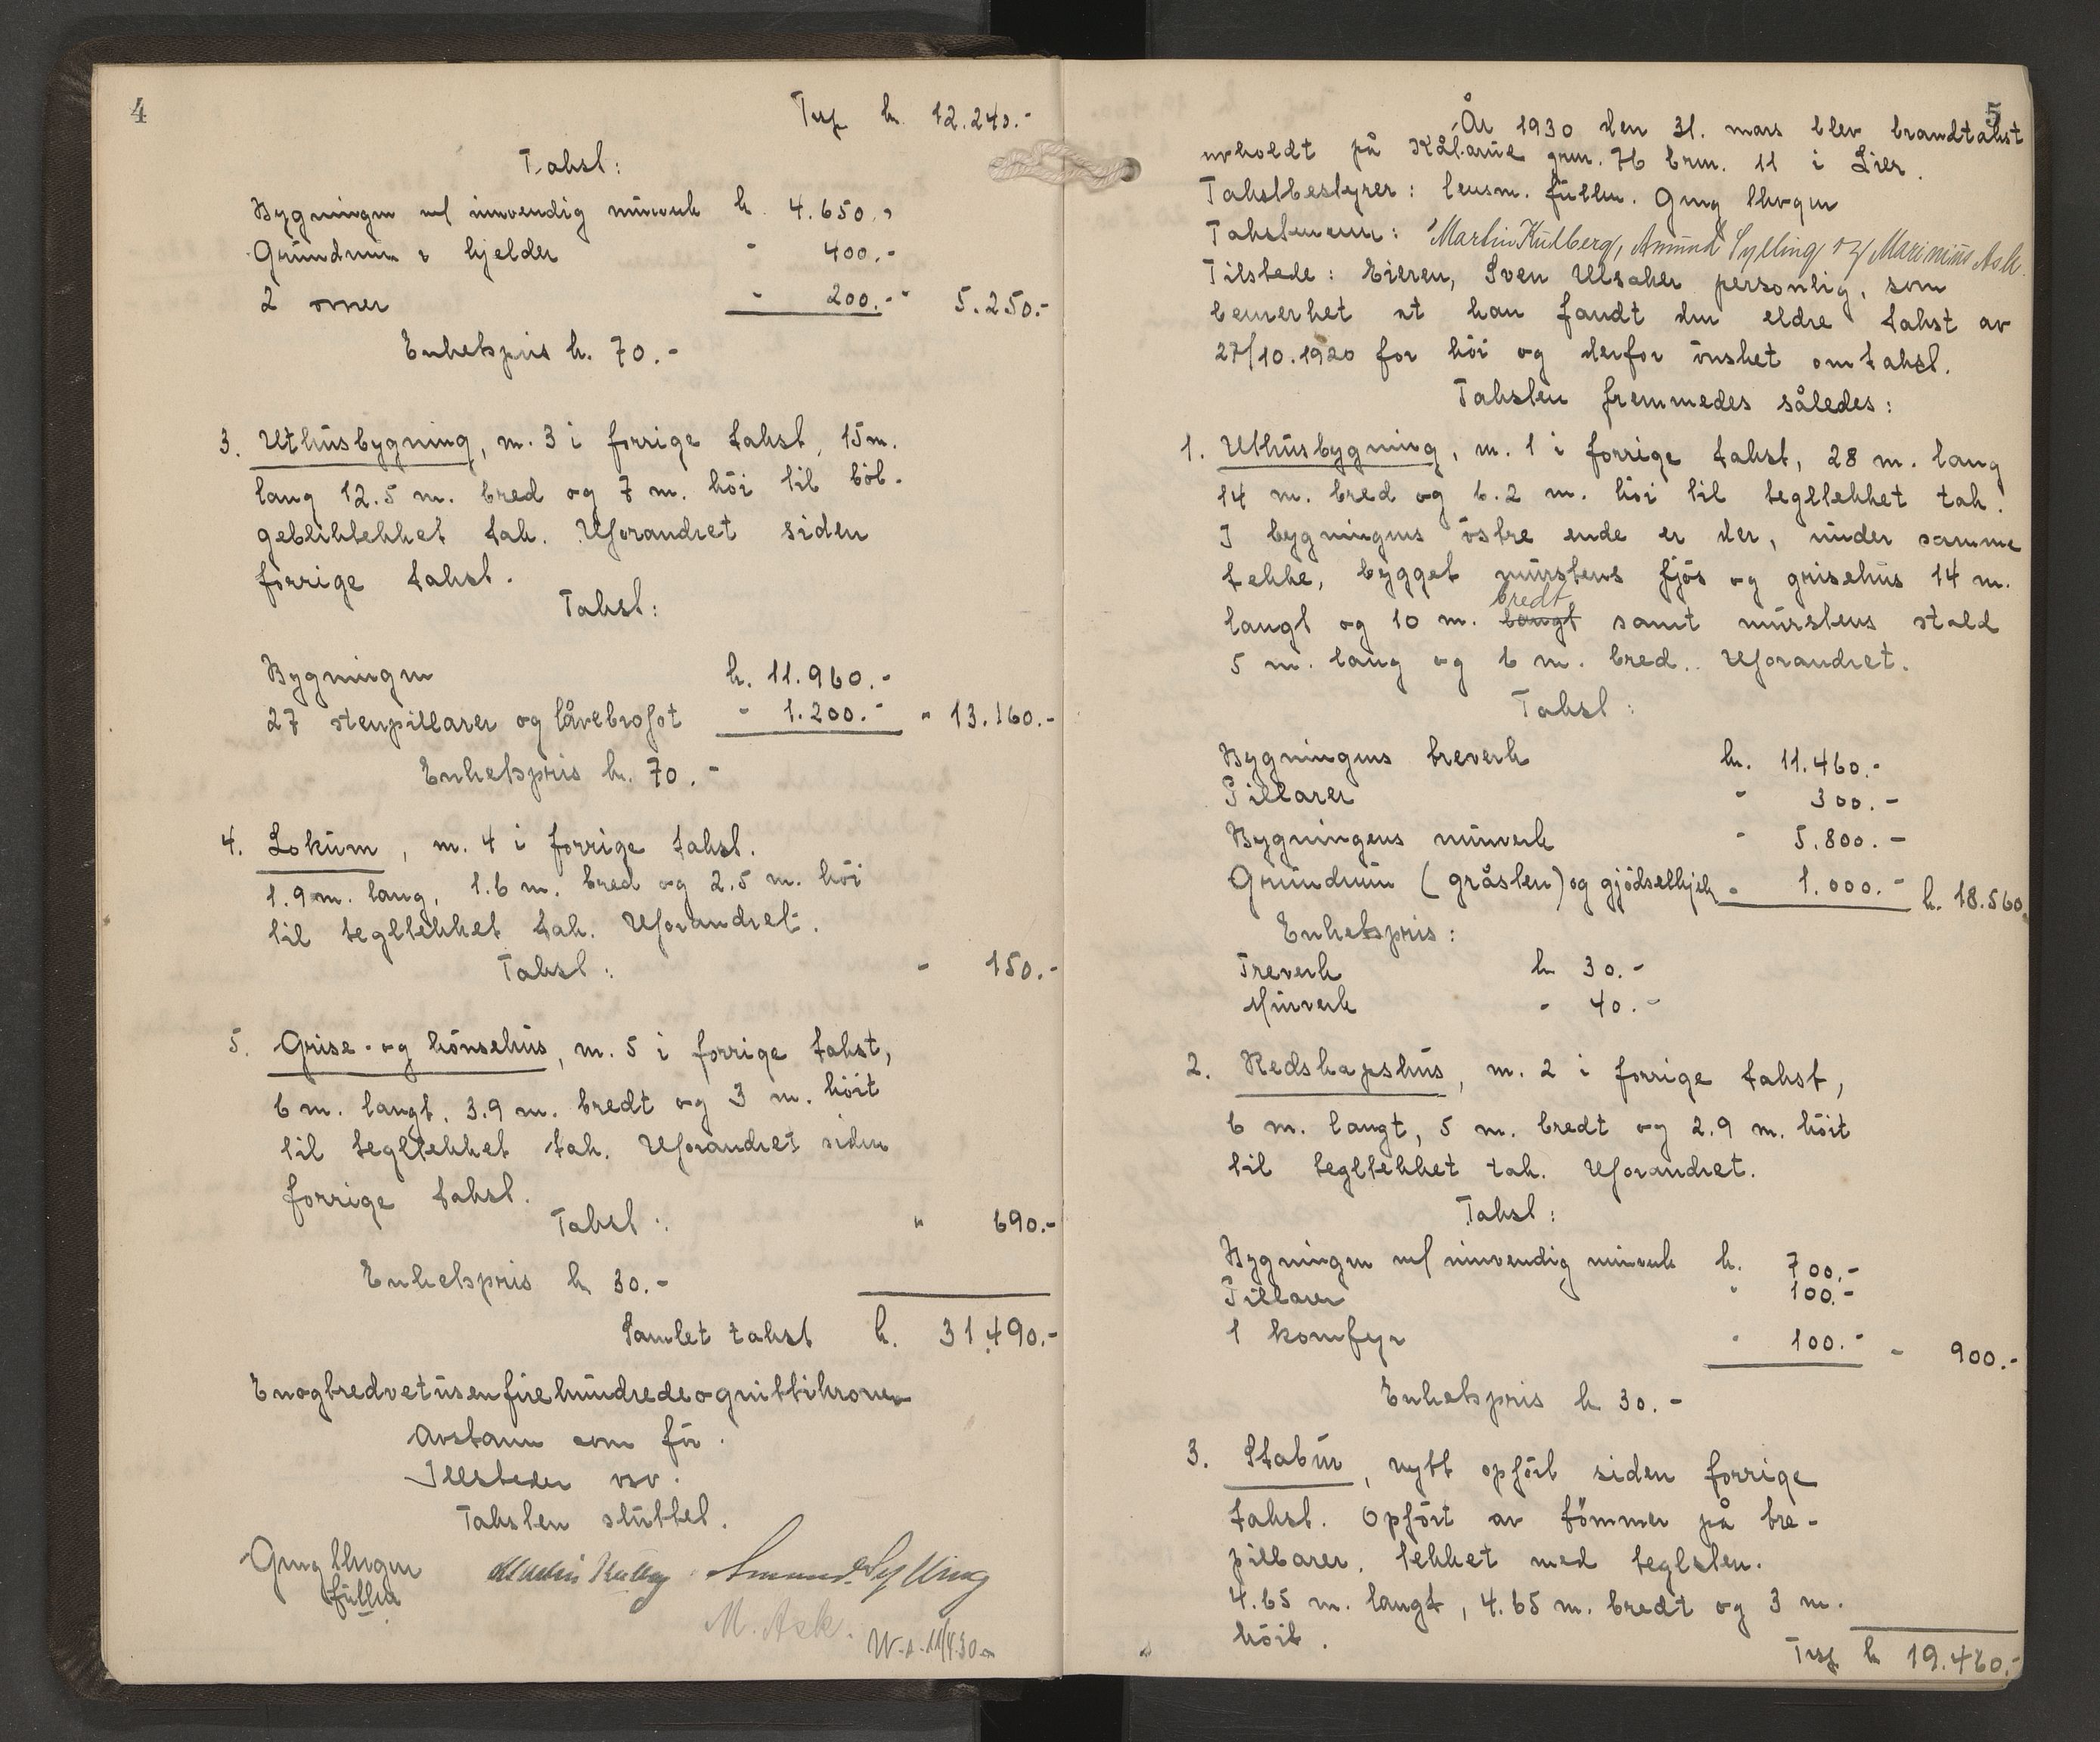 4
Trsp kr. 12.240.-
Takst:
Bygningen m/ innvendig murverk kr. 4.650.-
Grundmur & kjelder " 400.-
2 ovner " 200.- " 5.250.-
Enhetspris kr. 70.-
3. Uthusbygning, m. 3 i forrige takst, 15 m.
lang 12.5 m. bred og 7 m. höi til böl-
geblikktekket tak. Uforandret siden
forrige takst.
Takst:
Bygningen kr. 11.960.-
27 stenpillarer og låvebrofot " 1.200.- " 13.160.-
Enhetspris kr. 70.-
4. Lokum, m. 4 i forrige takst.
1.9 m. lang, 1.6 m. bred og 2.5 m. höi
til tegltekket tak. Uforandret.
Takst: " 150.-
5. Grise- og hönsehus, m. 5 i forrige takst,
6 m. langt, 3.9 m. bredt og 3 m. höit
til tegltekket tak. Uforandret siden
forrige takst.
Takst: " 690.-
Enhetspris kr 30.-
Samlet takst kr. 31.490.-
Enogtredvetusenfirehundredeognittikroner
Avstann som för.
Illsteder osv.
Taksten sluttet.
Martin Kulberg Amund Sylling
fullm
M. Ask.
11/4.30
5
År 1930 den 31. mars blev brandtakst
avholdt på gnr. 76 brn. 11 i Lier.
Takstbestyrer: lensm. fullm.
Takstmenn: Martin Kulberg, Amund Sylling og Marinius Ask.
Tilstede: Eieren, Sven Ulsaker personlig, som
bemerket at han fandt den eldre takst av
27/10.1920 for höi og derfor önsket omtakst.
Taksten fremmedes således:
1. Uthusbygning, m. 1 i forrige takst, 28 m. lang
14 m. bred og 6.2 m. höi til tegltekket tak.
I bygningens östre ende er der, under samme
tekke, bygget murstens fjös og grisehus 14 m.
bredt
langt og 10 m. langt samt murstens stald
5 m. lang og 6 m. bred. Uforandret.
Takst:
Bygningens treverk kr. 11.460.-
Pillarer " 300.-
Bygningens murverk " 5.800.-
Grundmur (gråsten) og gjödselkjeld " 1.000.- kr. 18.560.
Enhetspris:
Treverk kr 30.-
Murverk " 40.-
2. Redskapshus, m. 2 i forrige takst,
6 m. langt, 5 m. bredt og 2.9 m. höit
til tegltekket tak. Uforandret.
Takst:
Bygningen m/ innvendig murverk kr. 700.-
Pillarer " 100.-
1 komfyr " 100.- " 900.-
Enhetspris kr 30.-
3. Stabur, nytt opfört siden forrige
takst. Opfört av tömmer på tre-
pillarer, tekket med teglsten.
4.65 m. langt, 4.65 m. bredt og 3 m.
höit.
Trsp kr 19.460.-